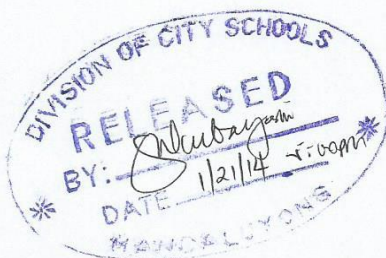 DIVISION OF CITY SCHOOLS
RELEASED
BY:
DATE 1/21/14
MANDALUYONG